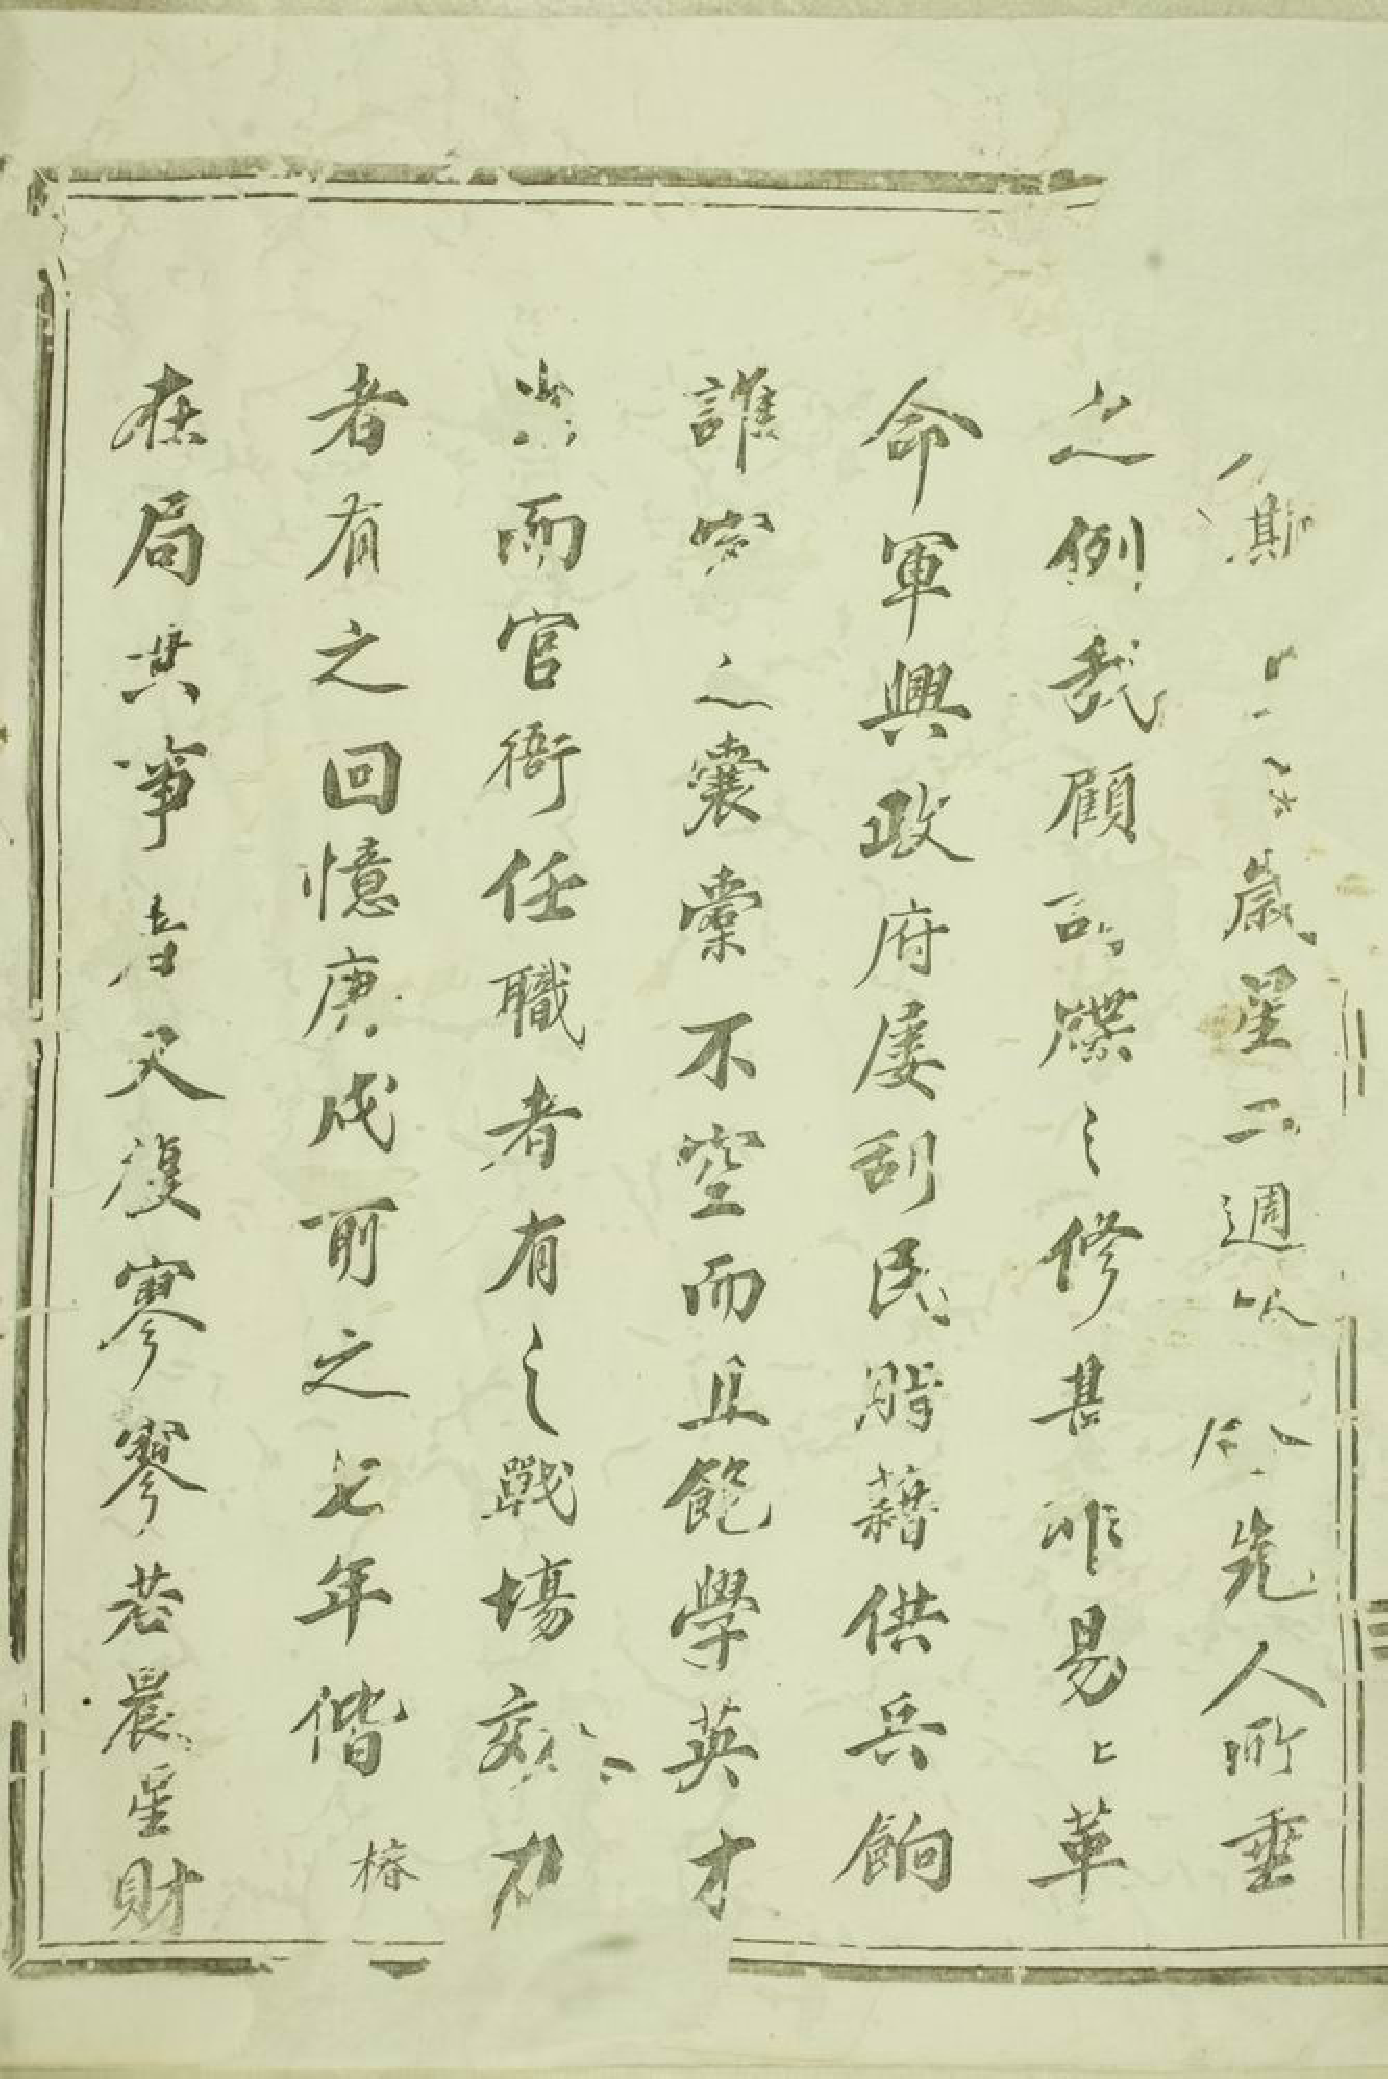 斯歲星二週先人所垂
之例我顧牒之修甚非易易革
命軍興政府屢刮民脂藉供兵餉
誰家之囊橐不空而且飽學英才
當而官衙任職者有之戰場效力
者有之回憶庚戌前之七年偕椿
在局共事者又復寥寥若晨星財